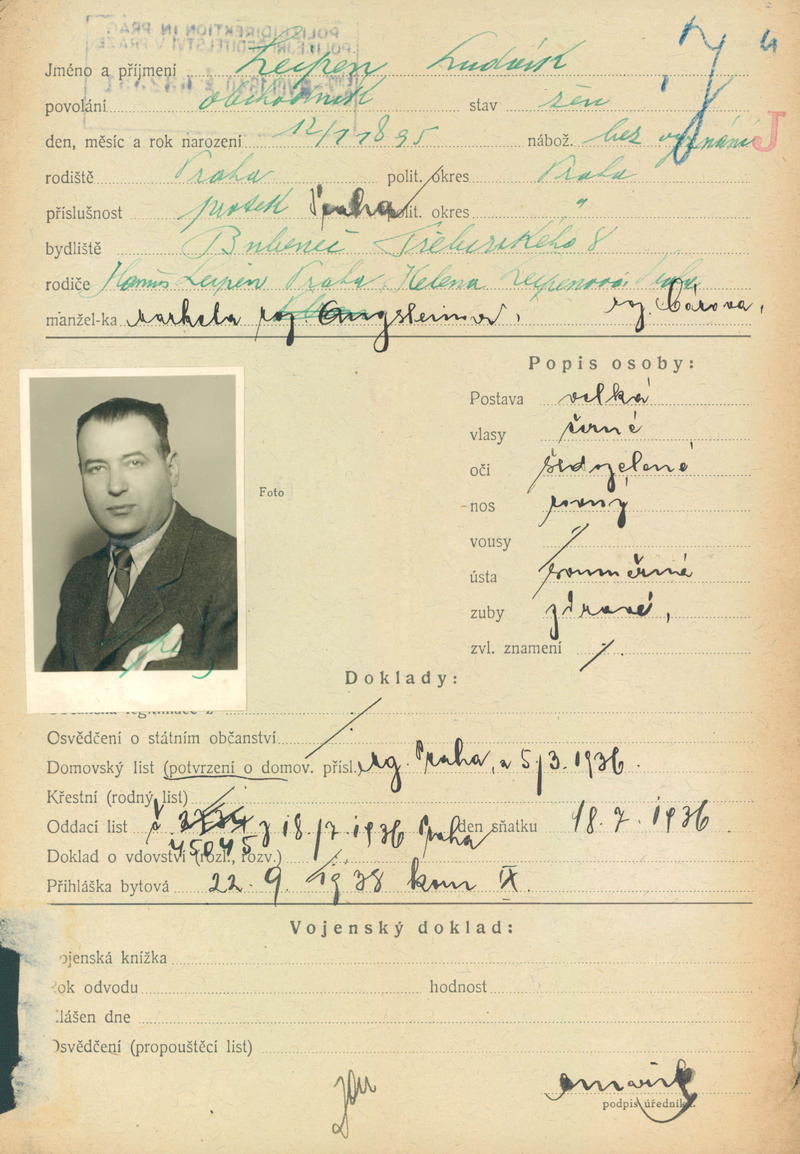 POLIZEIDIREKTION IN PRAG
POLICEJNÍ ŘEDITELSTVÍ V PRAZE
Jméno a příjmení Leipen Ludvík
povolání obchodník stav žen
den, měsíc a rok narození 12/1 1895 nábož. bez vyznání J
rodiště Praha polit. okres Praha
příslušnost Praha polit. okres "
bydliště Bubeneč 8
rodiče Hanuš Leipen Praha, Helena Leipenová
manžel-ka
Popis osoby:
Postava velká
vlasy černé
oči šedozelené
Foto
nos rovný
vousy /
ústa souměrné
zuby zdravé,
zvl. znamení /.
Doklady:
Osvědčení o státním občanství
Domovský list (potvrzení o domov. přísl.) mg. Praha, 5/3. 1936.
Křestní (rodný list)
Oddací list z 18/7. 1936 Praha den sňatku 18. 7. 1936
Doklad o vdovství (rozl., rozv.)
Přihláška bytová 22. 9. 1938 kom IX.
Vojenský doklad:
ojenská knížka
ok odvodu hodnost
lášen dne
svědčení (propouštěcí list)
podpis úředníka.